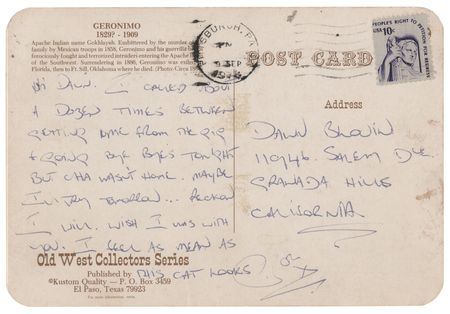 GERONIMO
1829? - 1909
Apache Indian name Gokhlayeh. Embittered by the murder
family by Mexican troops in 1858, Geronimo and his guerrilla
ferociously fought and terrorized intruders entering the Apache
of the Southwest. Surrendering in 1886, Geronimo was exiled
Florida, then to Ft. Sill, Oklahoma where he died. (Photo-Circa
Hi Dawn. I CALLED ABOUT
A DOZEN TIMES BETWEEN
GETTING HOME FROM THE GIG
& GOING BYE BYES TONIGHT
BUT CHA WASN'T HOME. MAYBE
I'LL TRY TOMORROW.. RECKON
I WILL. WISH I WAS WITH
YOU. I FEEL AS MEAN AS
THIS CAT LOOKS
Old West Collectors Series
Published by
©Kustom Quality — P. O. Box 3459
El Paso, Texas 79923
PITTSBURGH, PA
PM
SEP
PEOPLE'S RIGHT TO PETITION FOR REDRESS
USA 10c
POST CARD
Address
DAWN
11946 SALEM DVE
GRANADA HILLS
CALIFORNIA